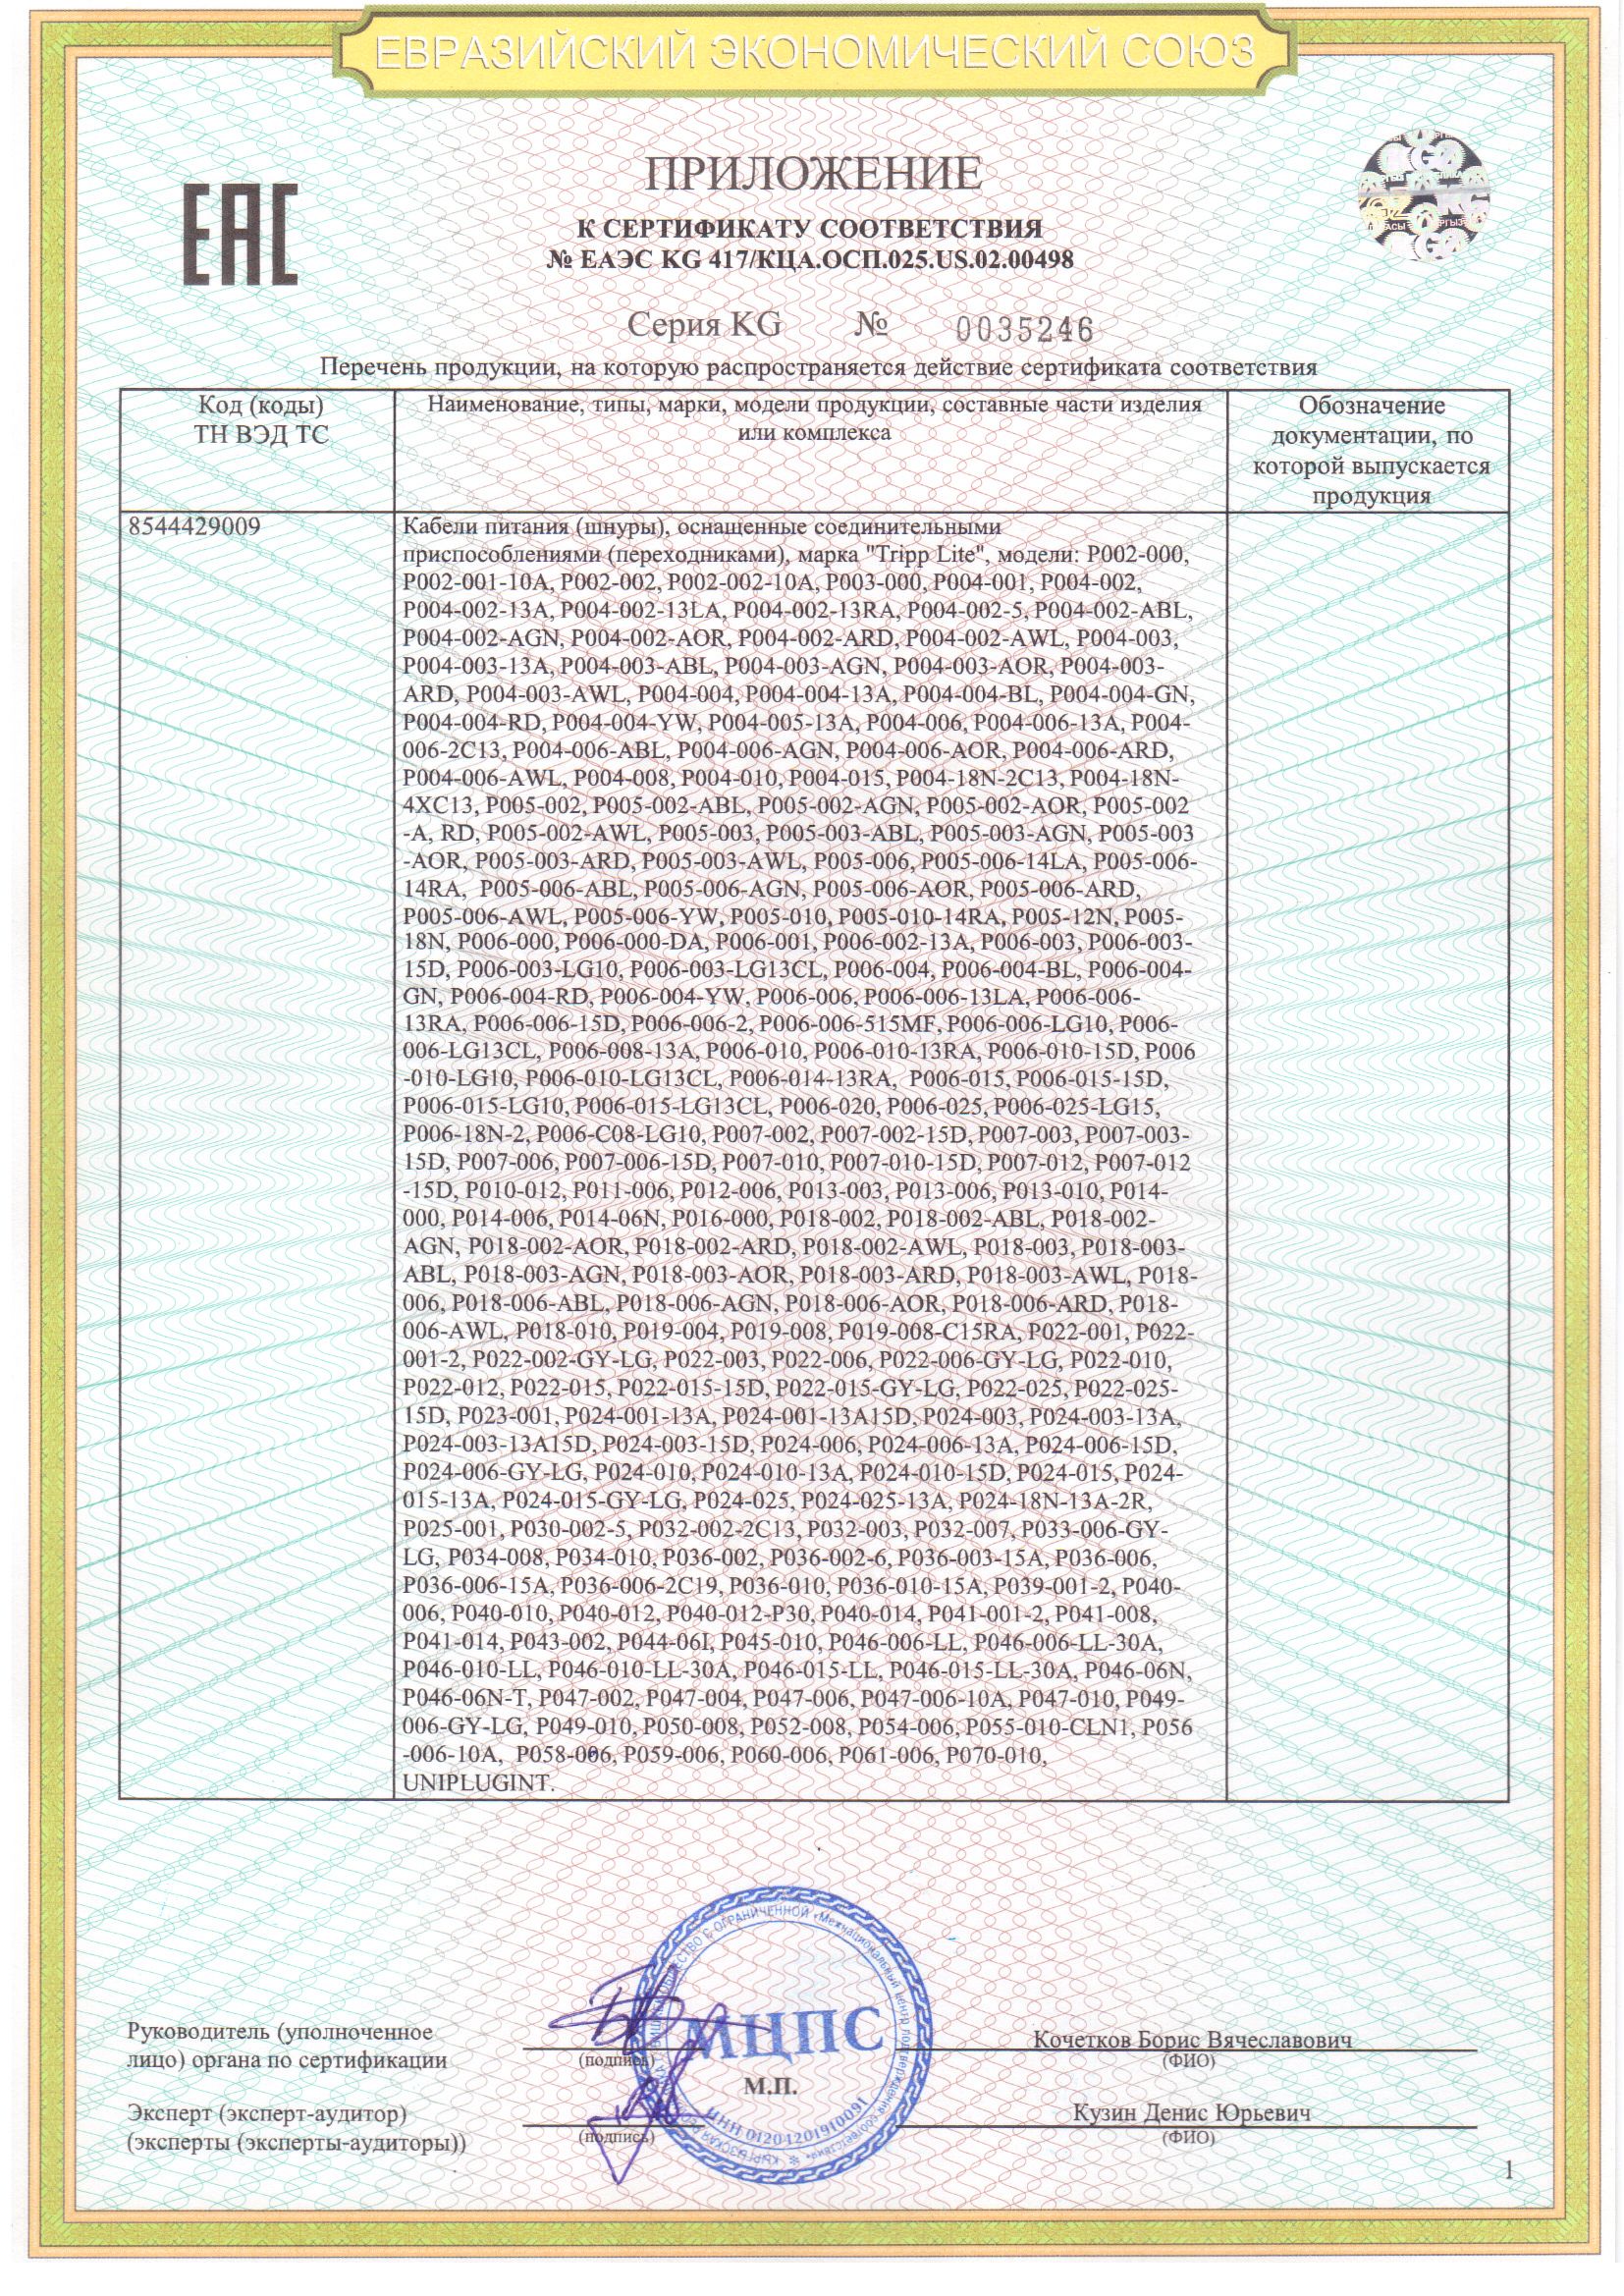 ЕВРАЗИЙСКИЙ ЭКОНОМИЧЕСКИЙ СОЮЗ
ЕАС
ПРИЛОЖЕНИЕ
К СЕРТИФИКАТУ СООТВЕТСТВИЯ
№ ЕАЭС KG 417/КЦА.ОСП.025.US.02.00498
Серия KG № 0035246
Перечень продукции, на которую распространяется действие сертификата соответствия
Код (коды)
ТН ВЭД ТС
Наименование, типы, марки, модели продукции, составные части изделия
или комплекса
Обозначение
документации, по
которой выпускается
продукция
8544429009
Кабели питания (шнуры), оснащенные соединительными
приспособлениями (переходниками), марка "Tripp Lite", модели: P002-000,
P002-001-10A, P002-002, P002-002-10A, P003-000, P004-001, P004-002,
P004-002-13A, P004-002-13LA, P004-002-13RA, P004-002-5, P004-002-ABL,
P004-002-AGN, P004-002-AOR, P004-002-ARD, P004-002-AWL, P004-003,
P004-003-13A, P004-003-ABL, P004-003-AGN, P004-003-AOR, P004-003-
ARD, P004-003-AWL, P004-004, P004-004-13A, P004-004-BL, P004-004-GN,
P004-004-RD, P004-004-YW, P004-005-13A, P004-006, P004-006-13A, P004-
006-2C13, P004-006-ABL, P004-006-AGN, P004-006-AOR, P004-006-ARD,
P004-006-AWL, P004-008, P004-010, P004-015, P004-18N-2C13, P004-18N-
4XC13, P005-002, P005-002-ABL, P005-002-AGN, P005-002-AOR, P005-002
-A, RD, P005-002-AWL, P005-003, P005-003-ABL, P005-003-AGN, P005-003
-AOR, P005-003-ARD, P005-003-AWL, P005-006, P005-006-14LA, P005-006-
14RA, P005-006-ABL, P005-006-AGN, P005-006-AOR, P005-006-ARD,
P005-006-AWL, P005-006-YW, P005-010, P005-010-14RA, P005-12N, P005-
18N, P006-000, P006-000-DA, P006-001, P006-002-13A, P006-003, P006-003-
15D, P006-003-LG10, P006-003-LG13CL, P006-004, P006-004-BL, P006-004-
GN, P006-004-RD, P006-004-YW, P006-006, P006-006-13LA, P006-006-
13RA, P006-006-15D, P006-006-2, P006-006-515MF, P006-006-LG10, P006-
006-LG13CL, P006-008-13A, P006-010, P006-010-13RA, P006-010-15D, P006
-010-LG10, P006-010-LG13CL, P006-014-13RA, P006-015, P006-015-15D,
P006-015-LG10, P006-015-LG13CL, P006-020, P006-025, P006-025-LG15,
P006-18N-2, P006-C08-LG10, P007-002, P007-002-15D, P007-003, P007-003-
15D, P007-006, P007-006-15D, P007-010, P007-010-15D, P007-012, P007-012
-15D, P010-012, P011-006, P012-006, P013-003, P013-006, P013-010, P014-
000, P014-006, P014-06N, P016-000, P018-002, P018-002-ABL, P018-002-
AGN, P018-002-AOR, P018-002-ARD, P018-002-AWL, P018-003, P018-003-
ABL, P018-003-AGN, P018-003-AOR, P018-003-ARD, P018-003-AWL, P018-
006, P018-006-ABL, P018-006-AGN, P018-006-AOR, P018-006-ARD, P018-
006-AWL, P018-010, P019-004, P019-008, P019-008-C15RA, P022-001, P022-
001-2, P022-002-GY-LG, P022-003, P022-006, P022-006-GY-LG, P022-010,
P022-012, P022-015, P022-015-15D, P022-015-GY-LG, P022-025, P022-025-
15D, P023-001, P024-001-13A, P024-001-13A15D, P024-003, P024-003-13A,
P024-003-13A15D, P024-003-15D, P024-006, P024-006-13A, P024-006-15D,
P024-006-GY-LG, P024-010, P024-010-13A, P024-010-15D, P024-015, P024-
015-13A, P024-015-GY-LG, P024-025, P024-025-13A, P024-18N-13A-2R,
P025-001, P030-002-5, P032-002-2C13, P032-003, P032-007, P033-006-GY-
LG, P034-008, P034-010, P036-002, P036-002-6, P036-003-15A, P036-006,
P036-006-15A, P036-006-2C19, P036-010, P036-010-15A, P039-001-2, P040-
006, P040-010, P040-012, P040-012-P30, P040-014, P041-001-2, P041-008,
P041-014, P043-002, P044-06I, P045-010, P046-006-LL, P046-006-LL-30A,
P046-010-LL, P046-010-LL-30A, P046-015-LL, P046-015-LL-30A, P046-06N,
P046-06N-T, P047-002, P047-004, P047-006, P047-006-10A, P047-010, P049-
006-GY-LG, P049-010, P050-008, P052-008, P054-006, P055-010-CLN1, P056
-006-10A, P058-006, P059-006, P060-006, P061-006, P070-010,
UNIPLUGINT.
Руководитель (уполноченное
лицо) органа по сертификации
(подпись)
Кочетков Борис Вячеславович
(ФИО)
МЦПС
М.П.
ИНН 01204201910091
Эксперт (эксперт-аудитор)
(эксперты (эксперты-аудиторы))
(подпись)
Кузин Денис Юрьевич
(ФИО)
1